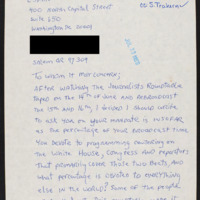 400 North Capitol Street
Suite 650
Washington DC 20001
cc S. Trahern
JUL 17
Salem OR 97309
To Whom it may concern:
After watching the Journalists Roundtable
taped on the 14th of June and rebroadcast
the 15th and 16th, I decided I should write
to ask you on your mandate is insofar
as the percentage of your broadcast time
you devote to programming centering on
the White House, Congress and reporters
that primarily cover those two beats, and
what percentage is dedicated to everything
else in the world? Some of the people